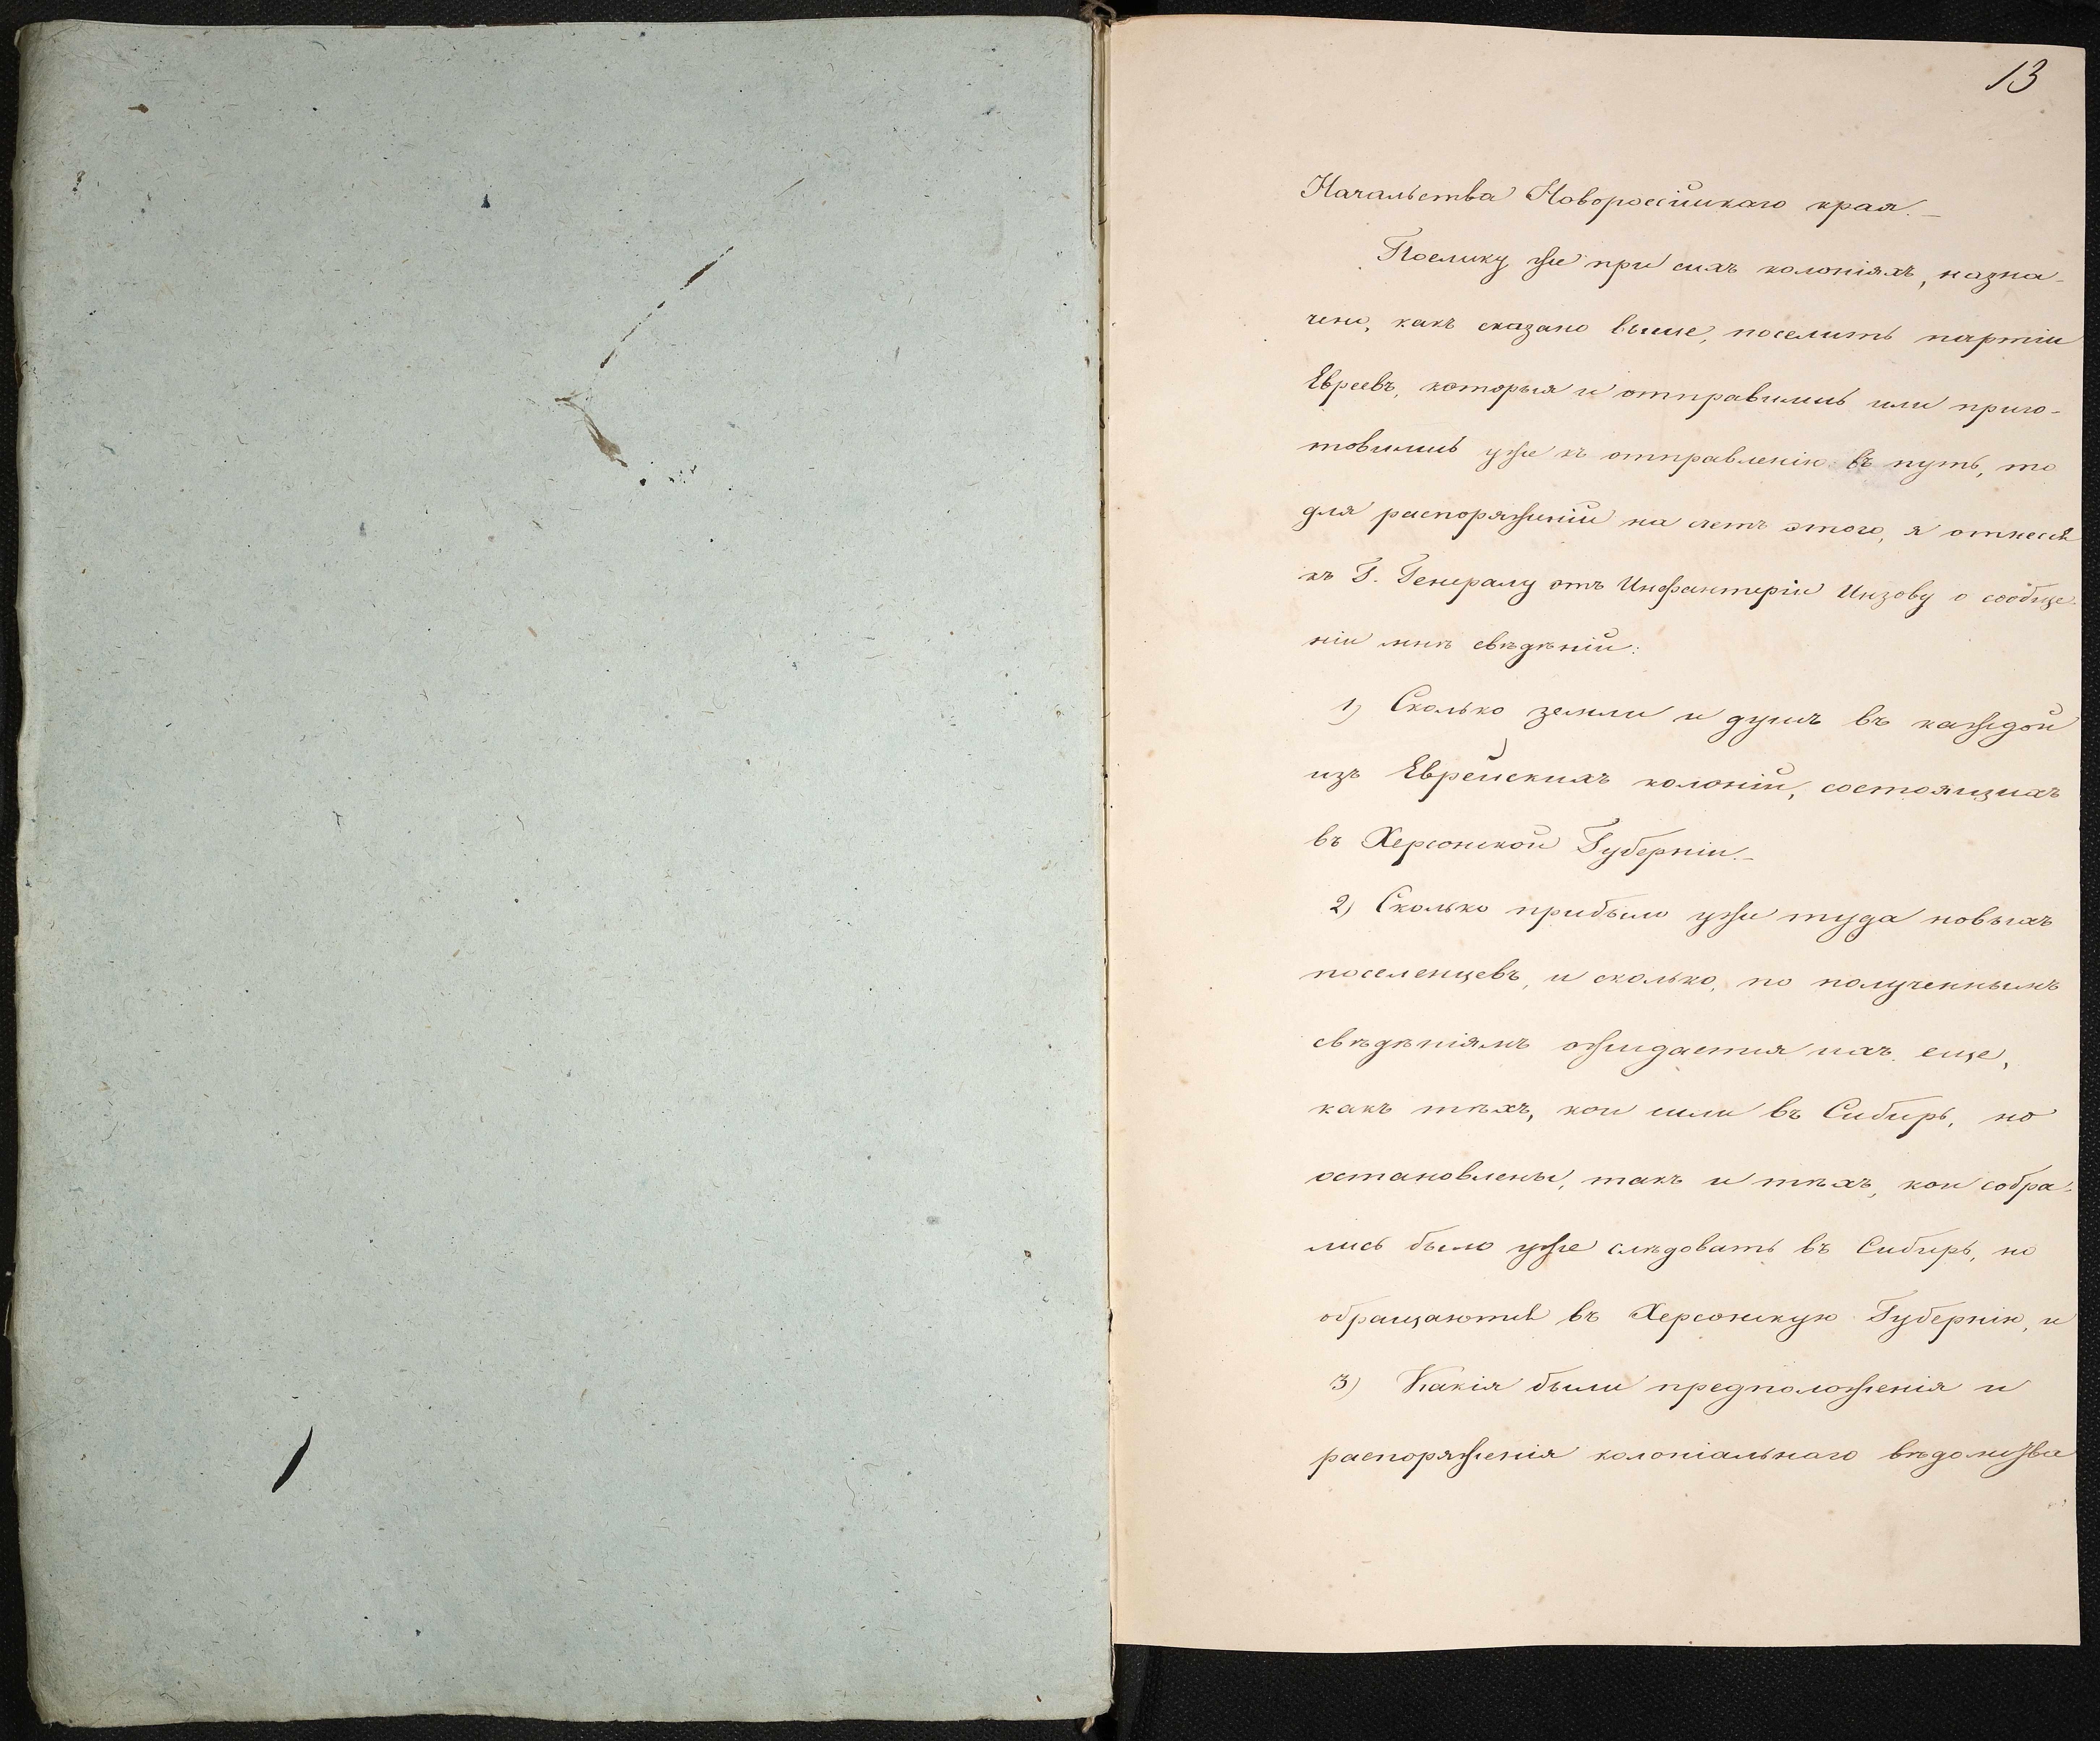 13
Начальства Новороссійскаго края. –
Поелику же при сихъ колоніяхъ, назна-
чено, какъ сказано выше, поселить партіи
Евреевъ, которыя и отправились или приго-
товились уже къ отправленію въ путь, то
для распоряженій на счетъ этого, я отнесся
къ Г. Генералу отъ Инфантеріи Инзову о сообще-
ніи мнѣ свѣдѣній:
1) Сколько земли и душъ въ каждой
изъ Еврейскихъ колоній, состоящихъ
въ Херсонской Губерніи. –
2) Сколько прибыло уже туда новыхъ
поселенцевъ, и сколько, по полученнымъ
свѣдѣніямъ ожидается ихъ еще,
какъ тѣхъ, кои шли въ Сибирь, но
остановлены, такъ и тѣхъ, кои собра-
лись было уже слѣдовать въ Сибирь, но
обращаются въ Херсонскую Губернію, и
3) Какія были предположенія и
распоряженія колоніальнаго вѣдомства